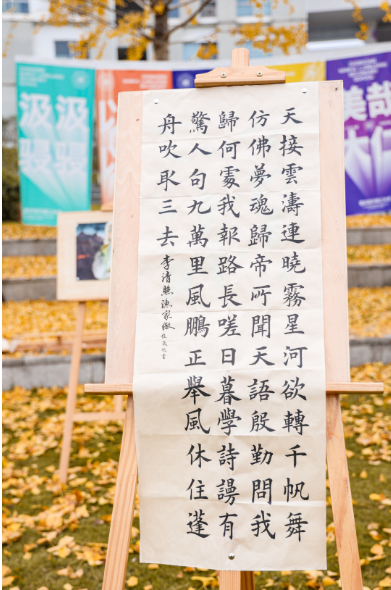 天接雲濤連曉霧星河欲轉千帆舞
仿佛夢魂歸帝所聞天語殷勤問我
歸何處我報路長嗟日暮學詩謾有
驚人句九萬里風鵬正舉風休住蓬
舟吹取三去
李清照漁家傲
汲汲
美哉